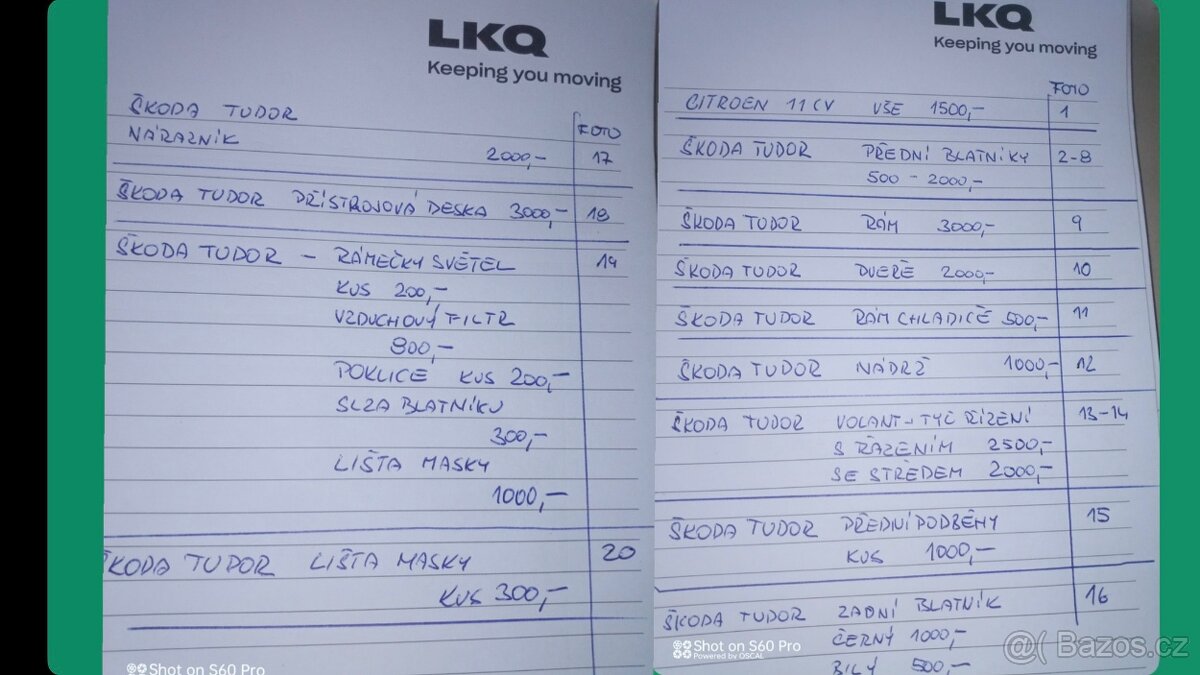 LKQ
Keeping you moving
FOTO
ŠKODA TUDOR
NÁRAZNÍK 2000,- 17
ŠKODA TUDOR PŘÍSTROJOVÁ DESKA 3000,- 18
ŠKODA TUDOR - RÁMEČKY SVĚTEL 19
KUS 200,-
VZDUCHOVÝ FILTR
800,-
POKLICE KUS 200,-
SLZA BLATNÍKU
300,-
LIŠTA MASKY
1000,-
ŠKODA TUDOR LIŠTA MASKY 20
KUS 300,-
Shot on S60 Pro
LKQ
Keeping you moving
FOTO
CITROEN 11 CV VŠE 1500,- 1
ŠKODA TUDOR PŘEDNÍ BLATNÍKY 2-8
500 - 2000,-
ŠKODA TUDOR RÁM 3000,- 9
ŠKODA TUDOR DVEŘE 2000,- 10
ŠKODA TUDOR RÁM CHLADIČE 500,- 11
ŠKODA TUDOR NÁDRŽ 1000,- 12
ŠKODA TUDOR VOLANT - TYČ ŘÍZENÍ 13-14
S ŘAZENÍM 2500,-
SE STŘEDEM 2000,-
ŠKODA TUDOR PŘEDNÍ PODBĚHY 15
KUS 1000,-
ŠKODA TUDOR ZADNÍ BLATNÍK 16
ČERNÝ 1000,-
BÍLÝ 500,-
Shot on S60 Pro
Powered by OSCAL
@( Bazos.cz